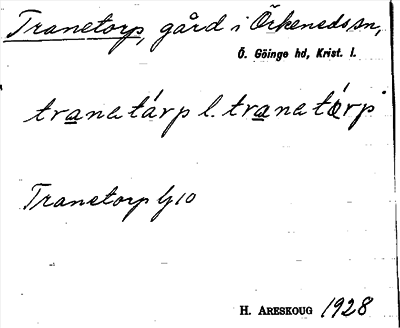 Tranetorp, gård i Örkeneds sn,
Ö. Göinge hd, Krist. l.
tranatárp l. tranatǻrp
Tranetorp GJ10
H. ARESKOUG 1928